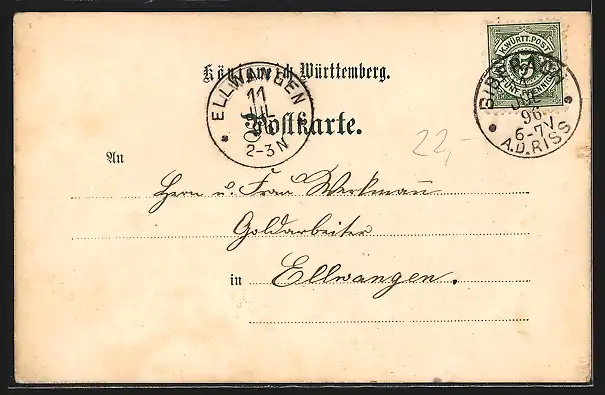 K. WÜRTT. POST
5
FÜNF PFENNIG
BIBERACH
JUL
96
6-7V
A.D. RISS
Königreich Württemberg.
ELLWANGEN
11
JUL
2-3N
Postkarte.
22,-
An
Herrn u. Frau Werkmann
Goldarbeiter
in Ellwangen.